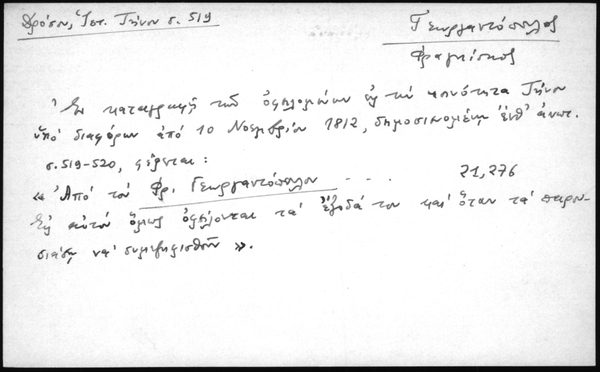 Δρόσου, Ἱστ. Τήνου σ. 519
Γεωργαντόπουλος
Φραγκίσκος
Ἐν καταγραφῇ τῶν ὀφειλομένων εἰς τὴν κοινότητα Τήνου
ὑπό διαφόρων ἀπό 10 Νοεμβρίου 1812, δημοσιευομένῃ ἔνθ' ἀνωτ.
σ. 519-520, φέρεται:
« Ἀπό τόν Φρ. Γεωργαντόπουλον - - . 21,276
Εἰς αὐτόν ὅμως ὀφείλονται τά ἔξοδά του καί ὅταν τά παρου-
σιάσῃ νά συμψηφισθοῦν ».